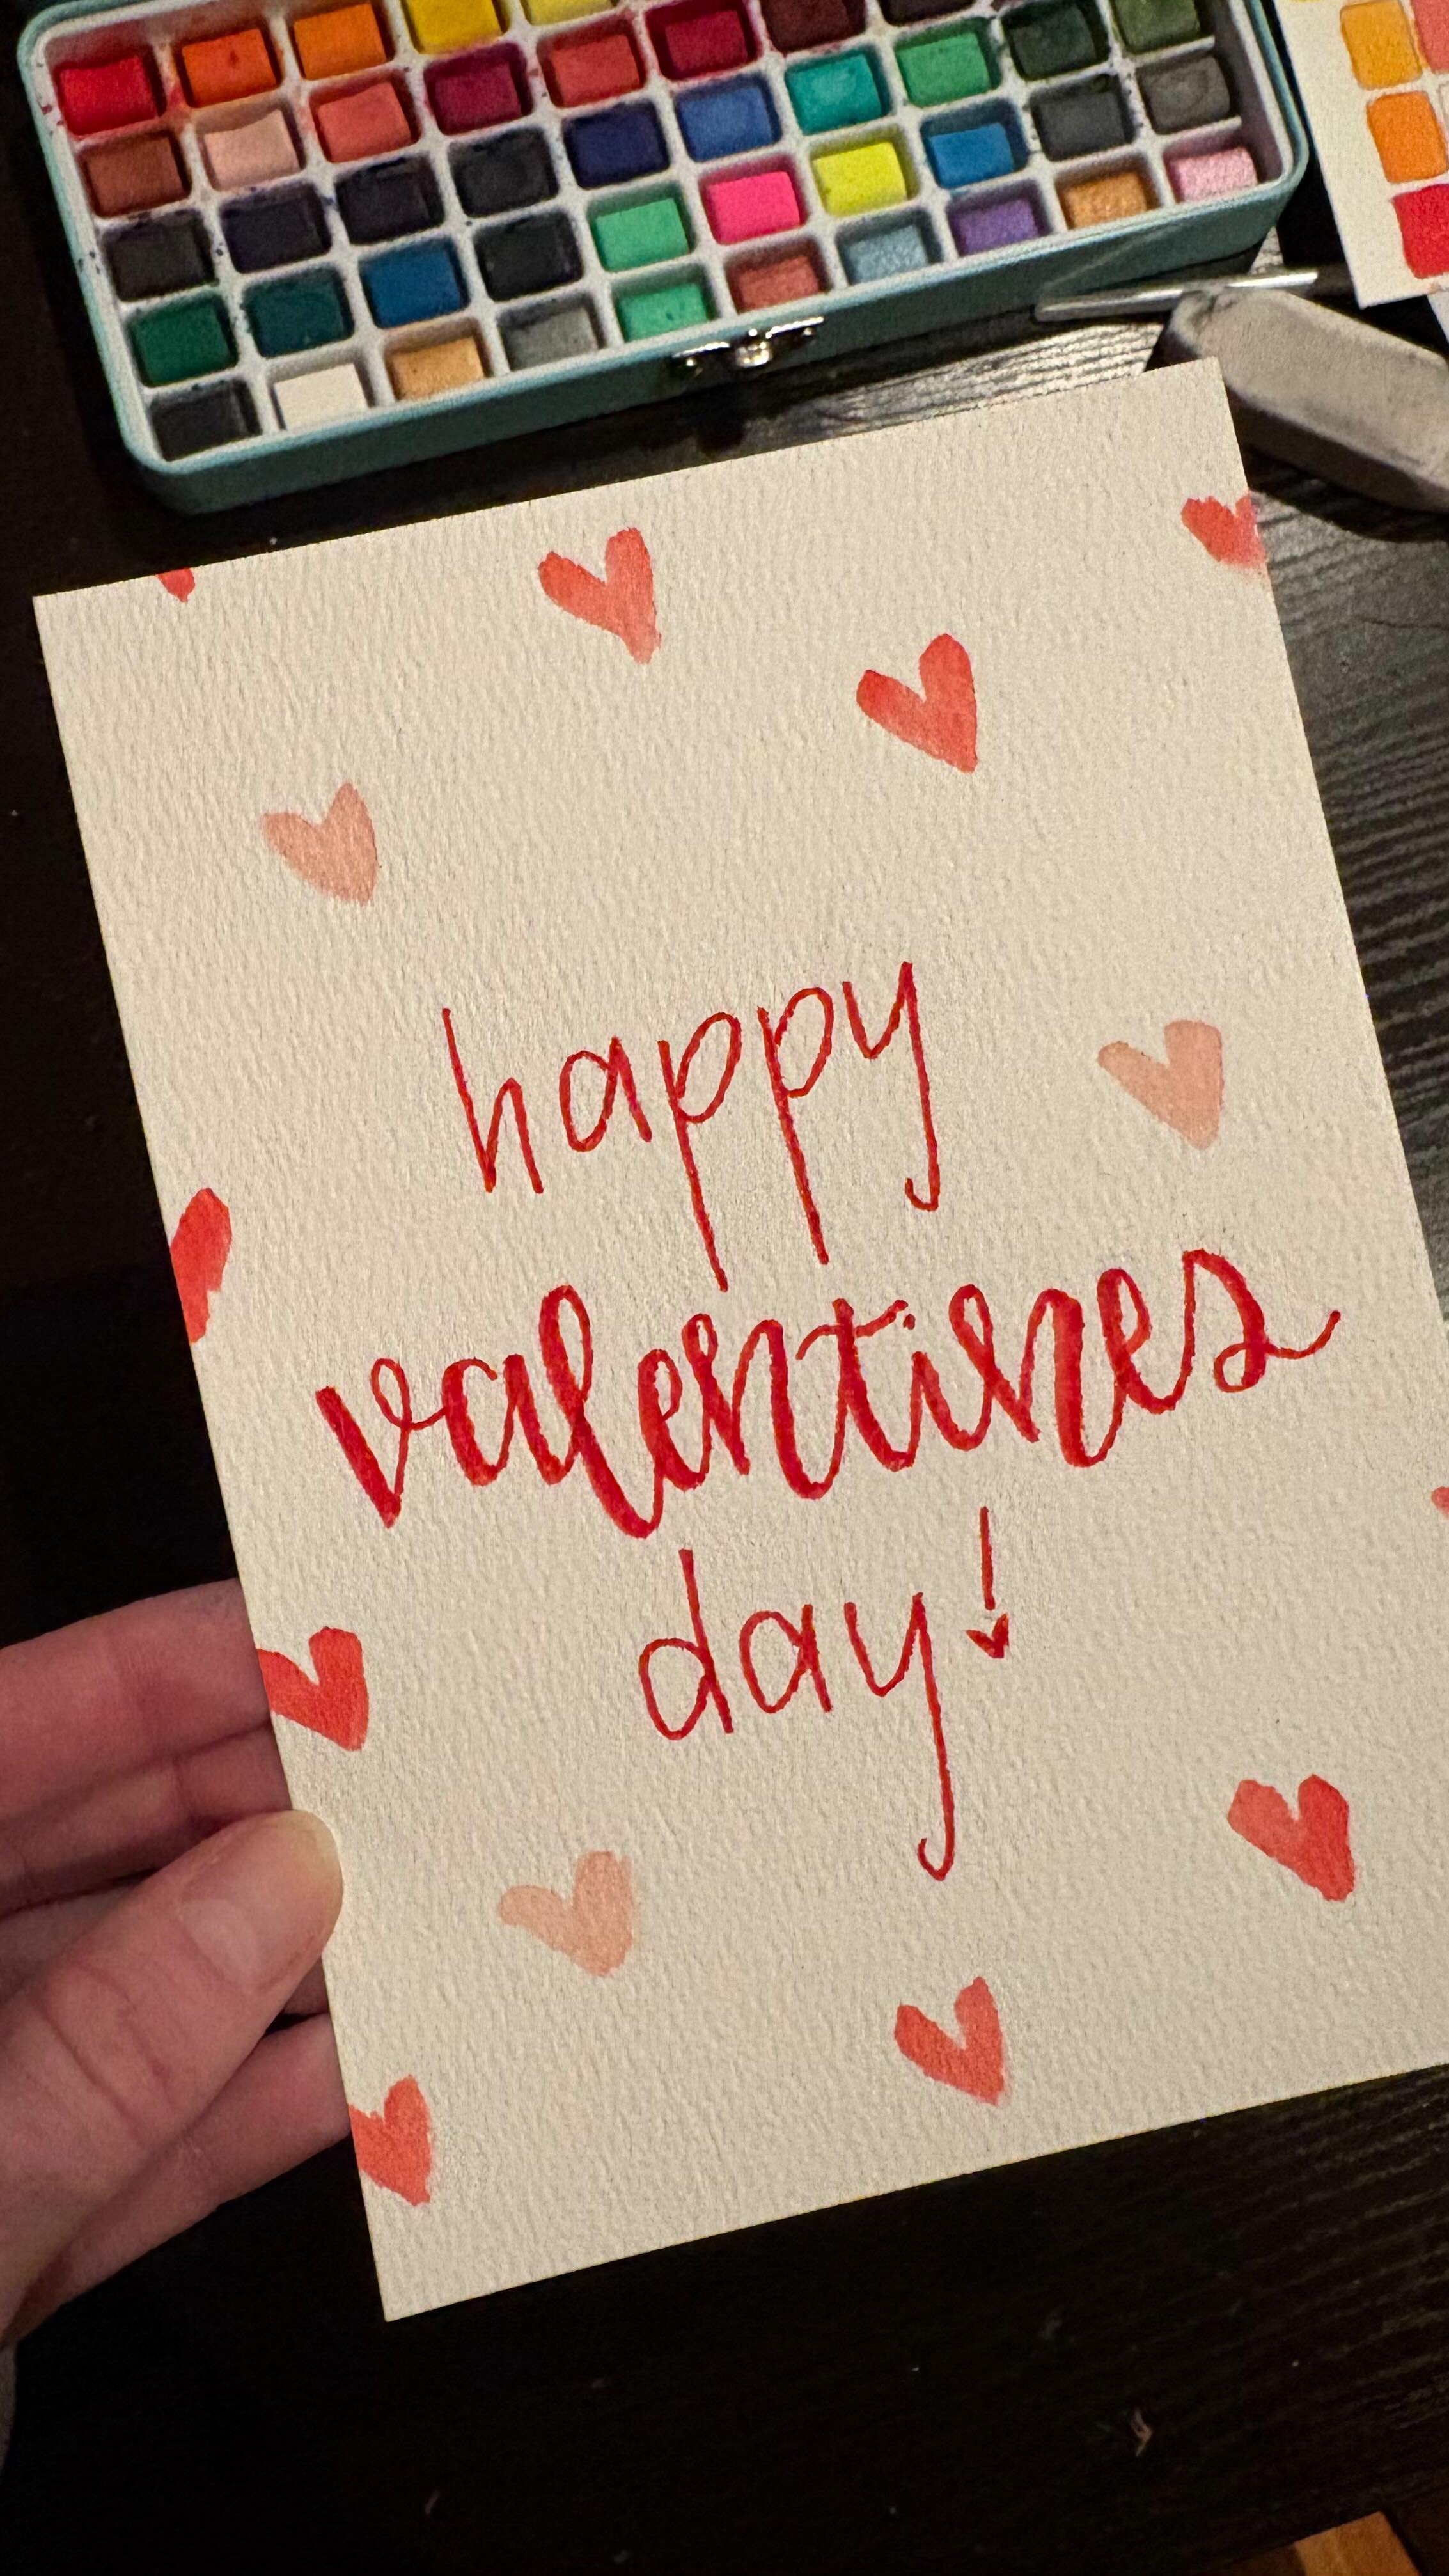 happy
valentines
day!